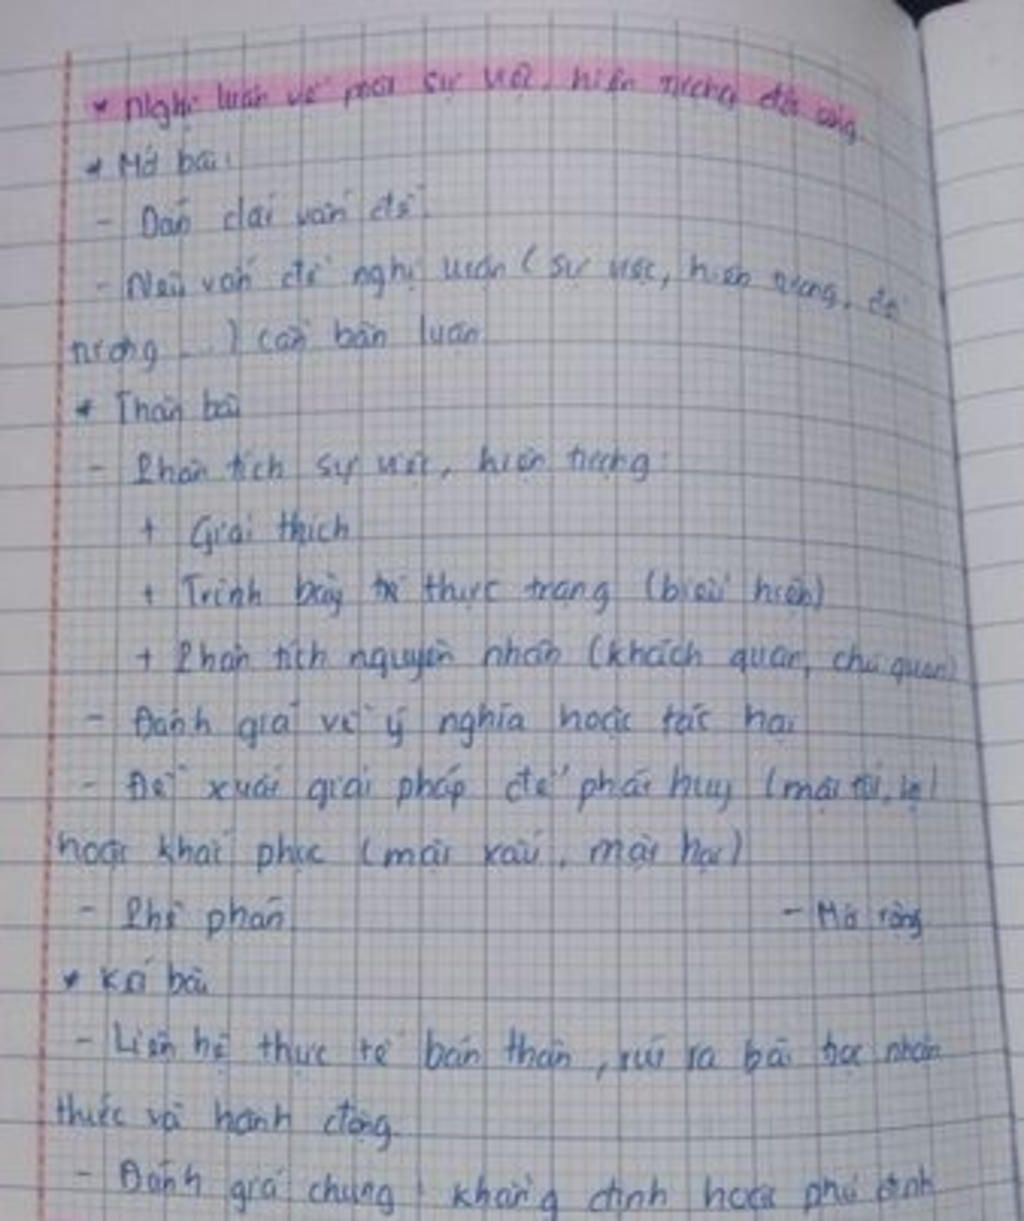 * Nghị luận về một sự việc, hiện tượng đời sống
* Mở bài:
- Dẫn dắt vấn đề.
- Nêu vấn đề nghị luận (sự việc, hiện tượng,
tượng ...) cần bàn luận
* Thân bài
- Phân tích sự việc, hiện tượng:
+ Giải thích
+ Trình bày thực trạng (biểu hiện)
+ Phân tích nguyên nhân (khách quan, chủ quan)
- Đánh giá về ý nghĩa hoặc tác hại
- Đề xuất giải pháp để phát huy (mặt tốt,
hoặc khắc phục (mặt xấu, mặt hại)
- Phê phán - Mở rộng
* Kết bài
- Liên hệ thực tế bản thân, rút ra bài học nhận
thức và hành động
- Đánh giá chung, khẳng định hoặc phủ định